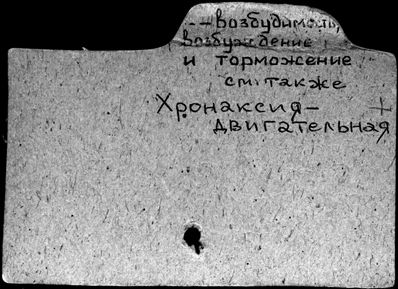 -- возбудимость,
возбуждение
и торможение
см. также
Хронаксия- +
двигательная